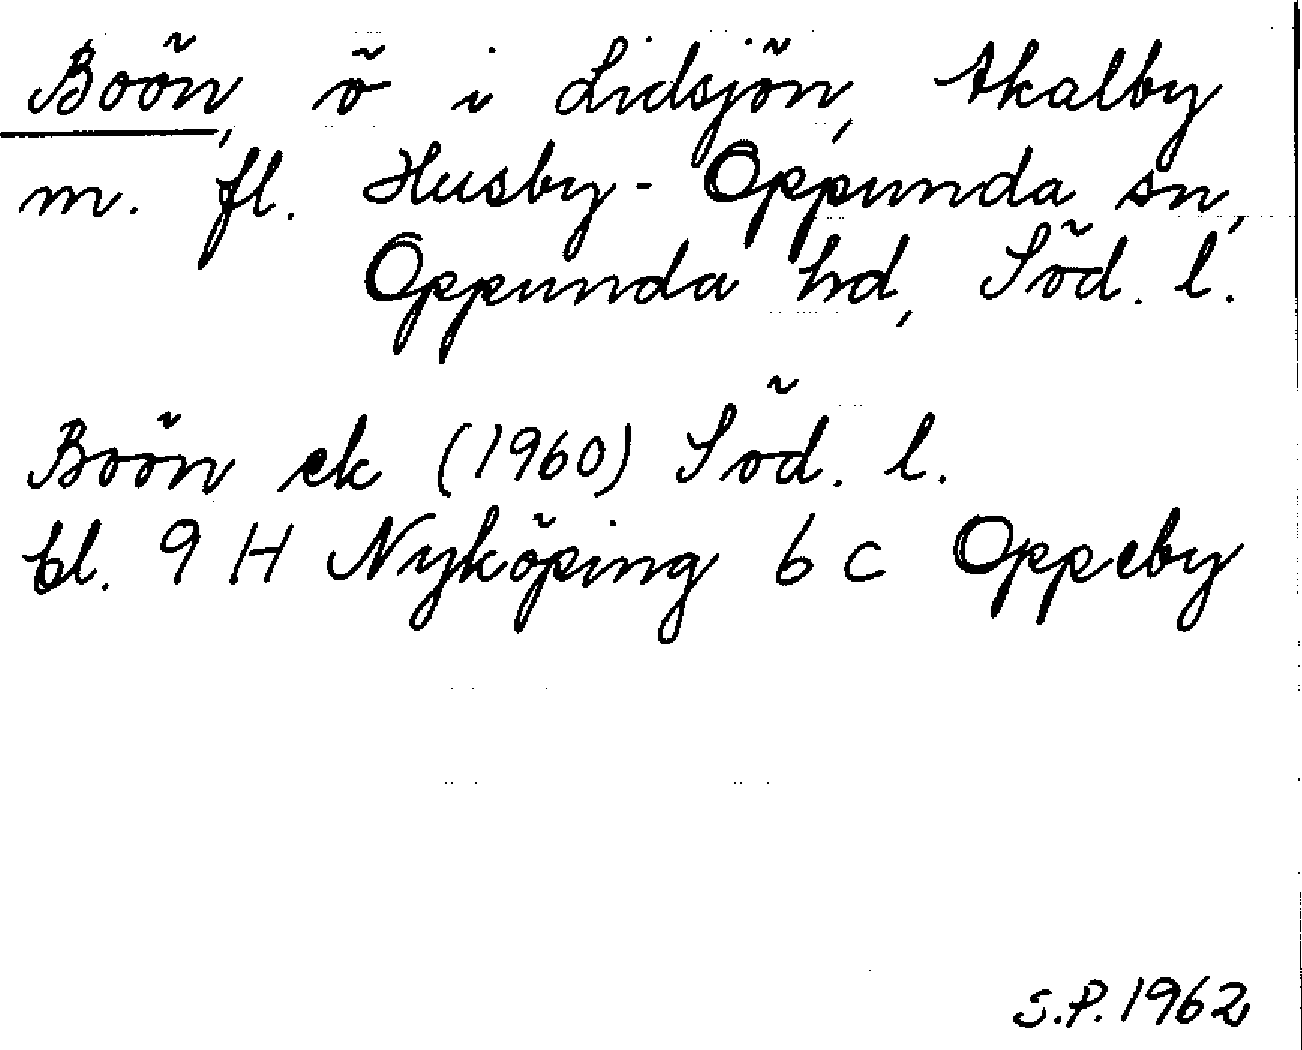 Boön, ö i Lidsjön, Skalby
m. fl. Husby-Oppunda sn,
Oppunda hd, Söd. l.
Boön ek (1960) Söd. l.
bl. 9 H Nyköping 6 c Oppeby
S.P. 1962